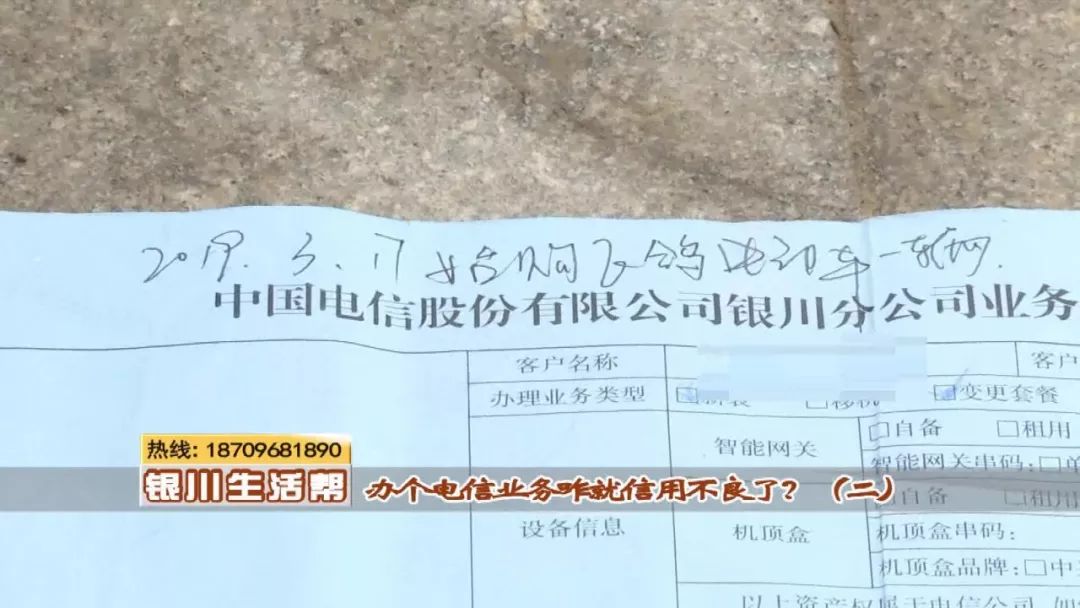 2019.3.17 始购飞鸽电动车一辆
中国电信股份有限公司银川分公司业务
客户名称
客户
办理业务类型
新装
移机
变更套餐
智能网关
自备
租用
智能网关串码:
设备信息
机顶盒
自备
租用
机顶盒串码:
机顶盒品牌:
以上资产权属于电信公司,如
热线: 18709681890
银川生活帮
办个电信业务咋就信用不良了?(二)